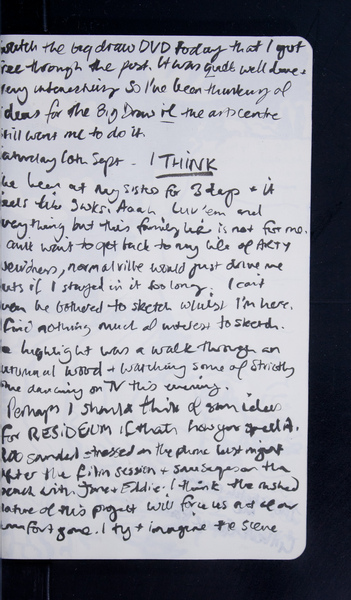 watch the big draw DVD today that I got
free through the post. It was quite well done +
very interesting so I've been thinking of
ideas for the Big Draw if the arts centre
still want me to do it.
Saturday 10th Sept - I THINK
I've been at my sisters for 3 days + it
feels like 3wks. Aaah luv 'em and
everything but this family life is not for me.
I can't want to get back to my life of Arty
weirdness, normalville would just drive me
nuts if I stayed in it too long. I can't
even be bothered to sketch whilst I'm here.
I find nothing much of interest to sketch.
highlight was a walk through an
autumnal wood + watching some of Strictly
come dancing on TV this evening.
Perhaps I should think of some ideas
for RESIDEUM if thats how you spell it.
sounded stressed on the phone last night
after the film session + sausages on the
beach with Jane + Eddie. I think the rushed
nature of this project will force us out of our
comfort zone. I try + imagine the scene